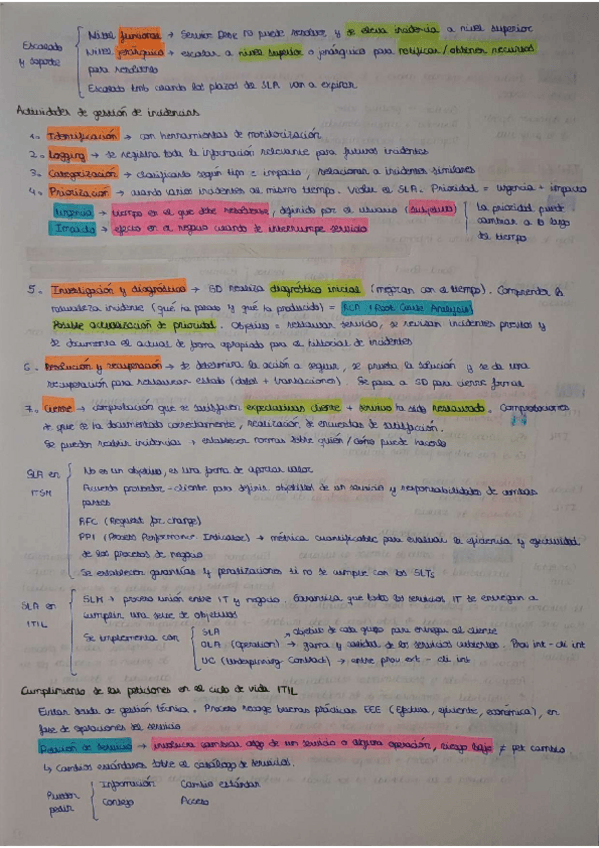 Escalado y soporte
Nivel funcional → Service Desk no puede resolver, y se eleva incidencia a nivel superior
Nivel jerárquico → escalar a nivel superior o jerárquico para notificar / obtener recursos
para resolverlo
Escalado tmb cuando los plazos de SLA van a expirar
Actividades de gestión de incidencias
1.- Identificación → con herramientas de monitorización
2.- Logging → se registra toda la información relevante para futuros incidentes
3.- Categorización → clasificarlo según tipo e impacto, relacionar a incidentes similares
4.- Priorización → cuando varios incidentes al mismo tiempo. Valor el SLA. Prioridad = urgencia + impacto
Urgencia → tiempo en el que debe resolverse, definido por el usuario (subjetivo)
Impacto → efecto en el negocio cuando se interrumpe servicio
La prioridad puede
cambiar a lo largo
del tiempo
5.- Investigación y diagnóstico → SD realiza diagnóstico inicial (mejoran con el tiempo). Comprender la
naturaleza incidente (qué ha pasado y qué lo producido) = RCA (Root Cause Analysis)
Posible actualización de prioridad. Objetivo = restaurar servicio, se revisan incidentes previos y
se documenta el actual de forma apropiada para el historial de incidentes
6.- Resolución y recuperación → se determina la acción a seguir, se prueba la solución y se da una
recuperación para restaurar estado (datos + transacciones). Se pasa a SD para cierre formal
7.- Cierre → comprobación que se satisfacen expectativas cliente + servicio ha sido restaurado. Comprobaciones
de que se ha documentado correctamente, realización de encuestas de satisfacción.
Se pueden reabrir incidencias → establecer normas sobre quién / cómo puede hacerlo
SLA en ITSM
No es un objetivo, es una forma de aportar valor
Acuerdo proveedor - cliente para definir objetivos de un servicio y responsabilidades de ambas
partes
RFC (Request for change)
PPI (Process Performance Indicator) → métrica cuantificable para evaluar la eficiencia y efectividad
de los procesos de negocio
Se establecen garantías y penalizaciones si no se cumple con los SLTs
SLA en ITIL
SLM → proceso unión entre IT y negocio. Garantiza que todos los servicios IT se entregan a
cumplir una serie de objetivos
Se implementa con
SLA → objetivo de cada grupo para entregar al cliente
OLA (Operation) → gama y calidad de los servicios. Prov int - cli int
UC (Underpinning Contract) → entre prov ext - cli int
Cumplimiento de las peticiones en el ciclo de vida ITIL
Evitar deuda de gestión técnica. Proceso recoge buenas prácticas EEE (Efectiva, eficiente, económica), en
fase de operaciones del servicio
Petición de servicio → involucra cambiar algo de un servicio o alguna operación, riesgo bajo ≠ pet cambio
↳ Cambios estándares sobre el catálogo de servicios.
Pueden pedir
Información Cambio estándar
Consejo Acceso